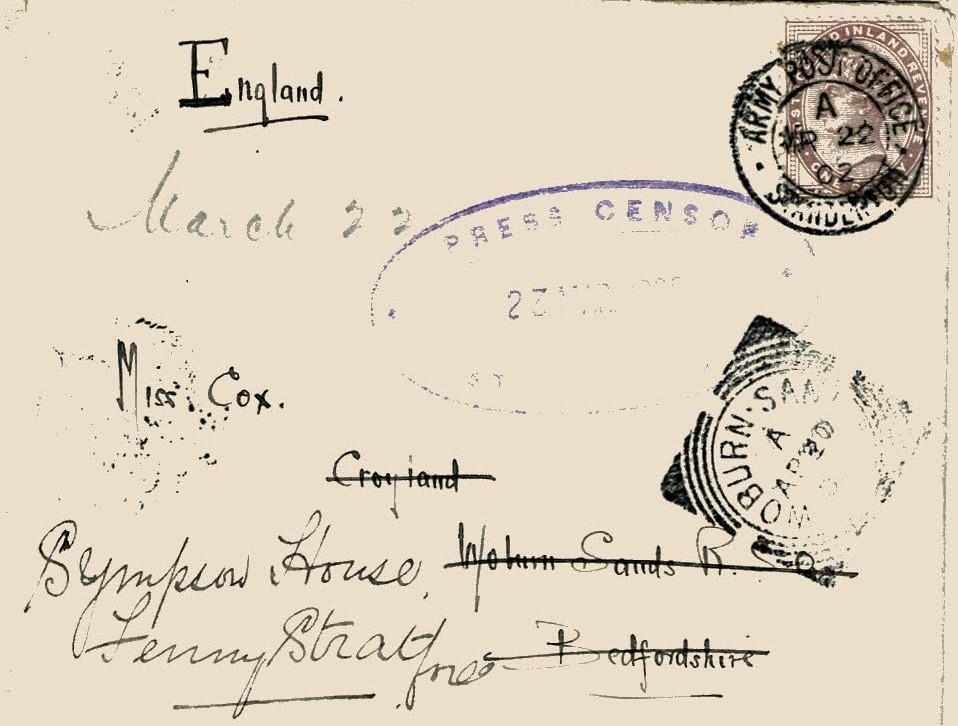 England.
POSTAGE AND INLAND REVENUE
ARMY POST OFFICE
A
22
02
STANDERTON
March 22
PRESS CENSOR
23
ST
Miss Cox.
WOBURN·SANDS
A
AP 20
Croyland
Sympson House, Woburn Sands R.S.O.
Fenny Stratford Bedfordshire